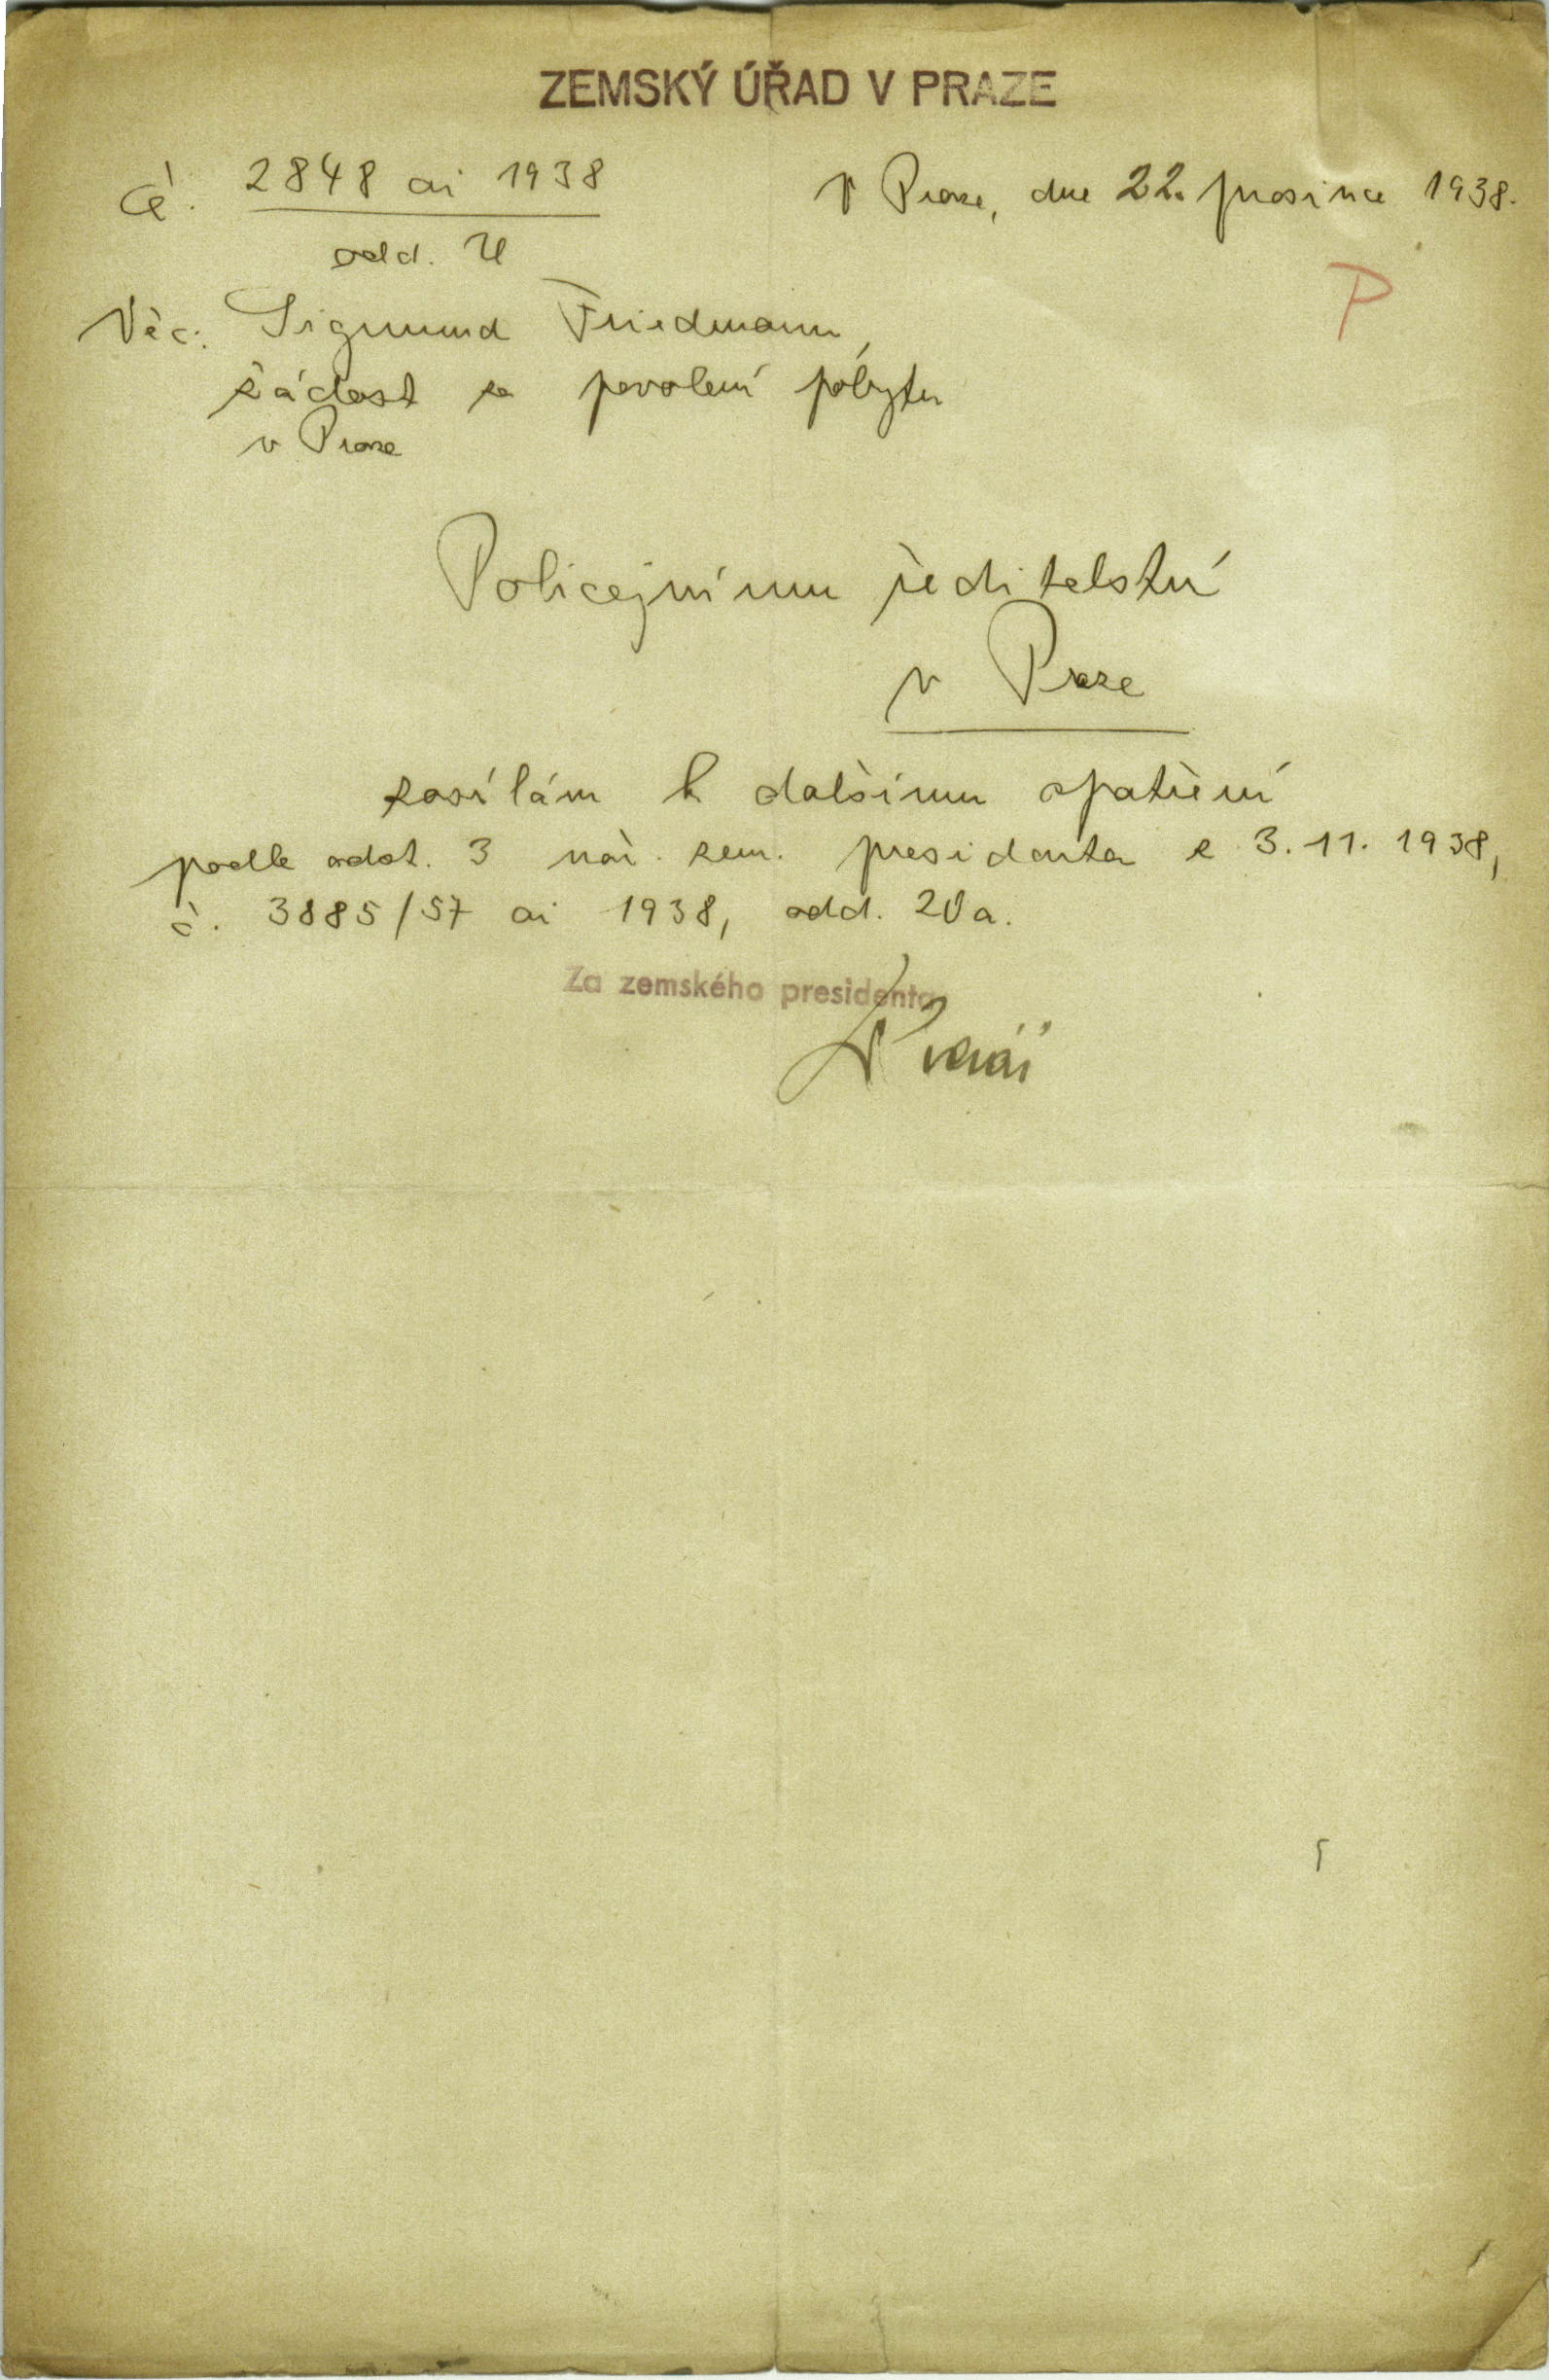 ZEMSKÝ ÚŘAD V PRAZE
Č. 2848 ai 1938
odd. U
V Praze, dne 22. prosince 1938.
P
Věc: Sigmund Friedmann,
žádost za povolení pobytu
v Praze
Policejnímu ředitelství
v Praze
zasílám k dalšímu opatření
podle odst. 3 nař. zem. presidenta z 3. 11. 1938,
č. 3885/57 ai 1938, odd. 20a.
Za zemského presidenta